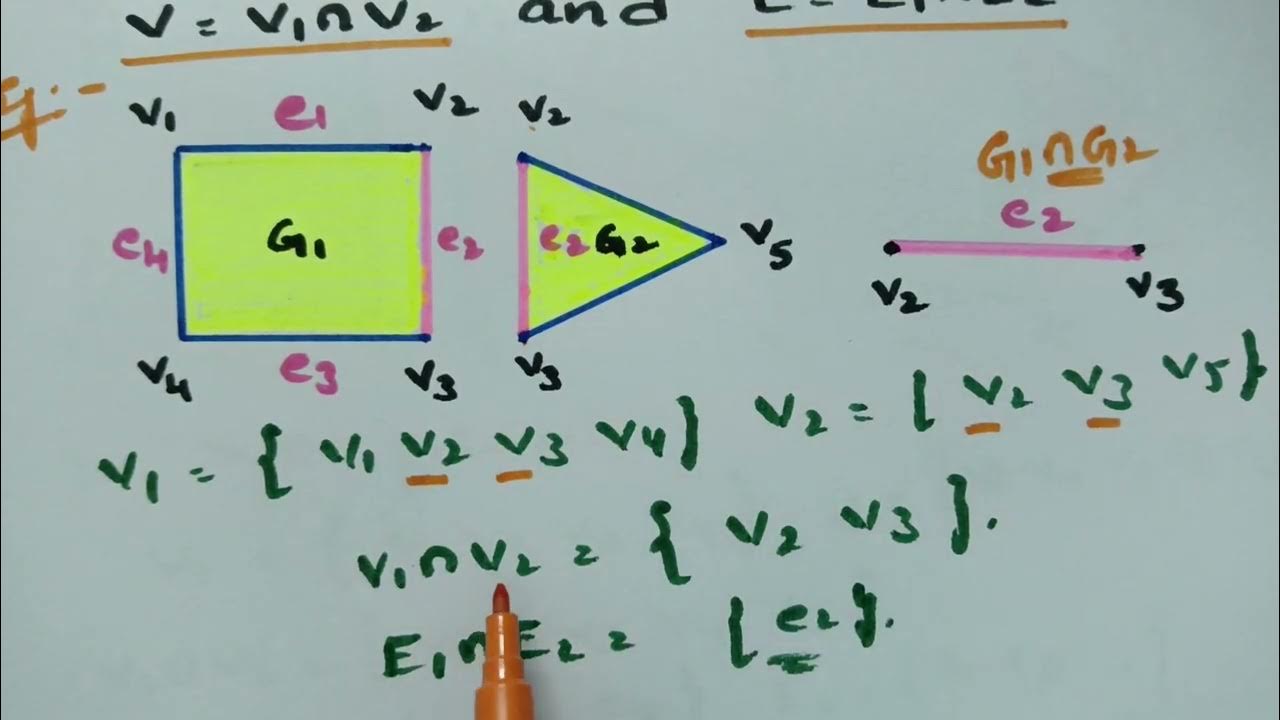 V = V1 ∩ V2 and E = E1 ∩ E2
Eg:-
v1 e1 v2 v2
G1 ∩ G2
e4 G1 e2 e2 G2 v5 e2
v2 v3
v4 e3 v3 v3
V1 = { v1 v2 v3 v4 } V2 = { v2 v3 v5 }
V1 ∩ V2 = { v2 v3 }.
E1 ∩ E2 = { e2 }.